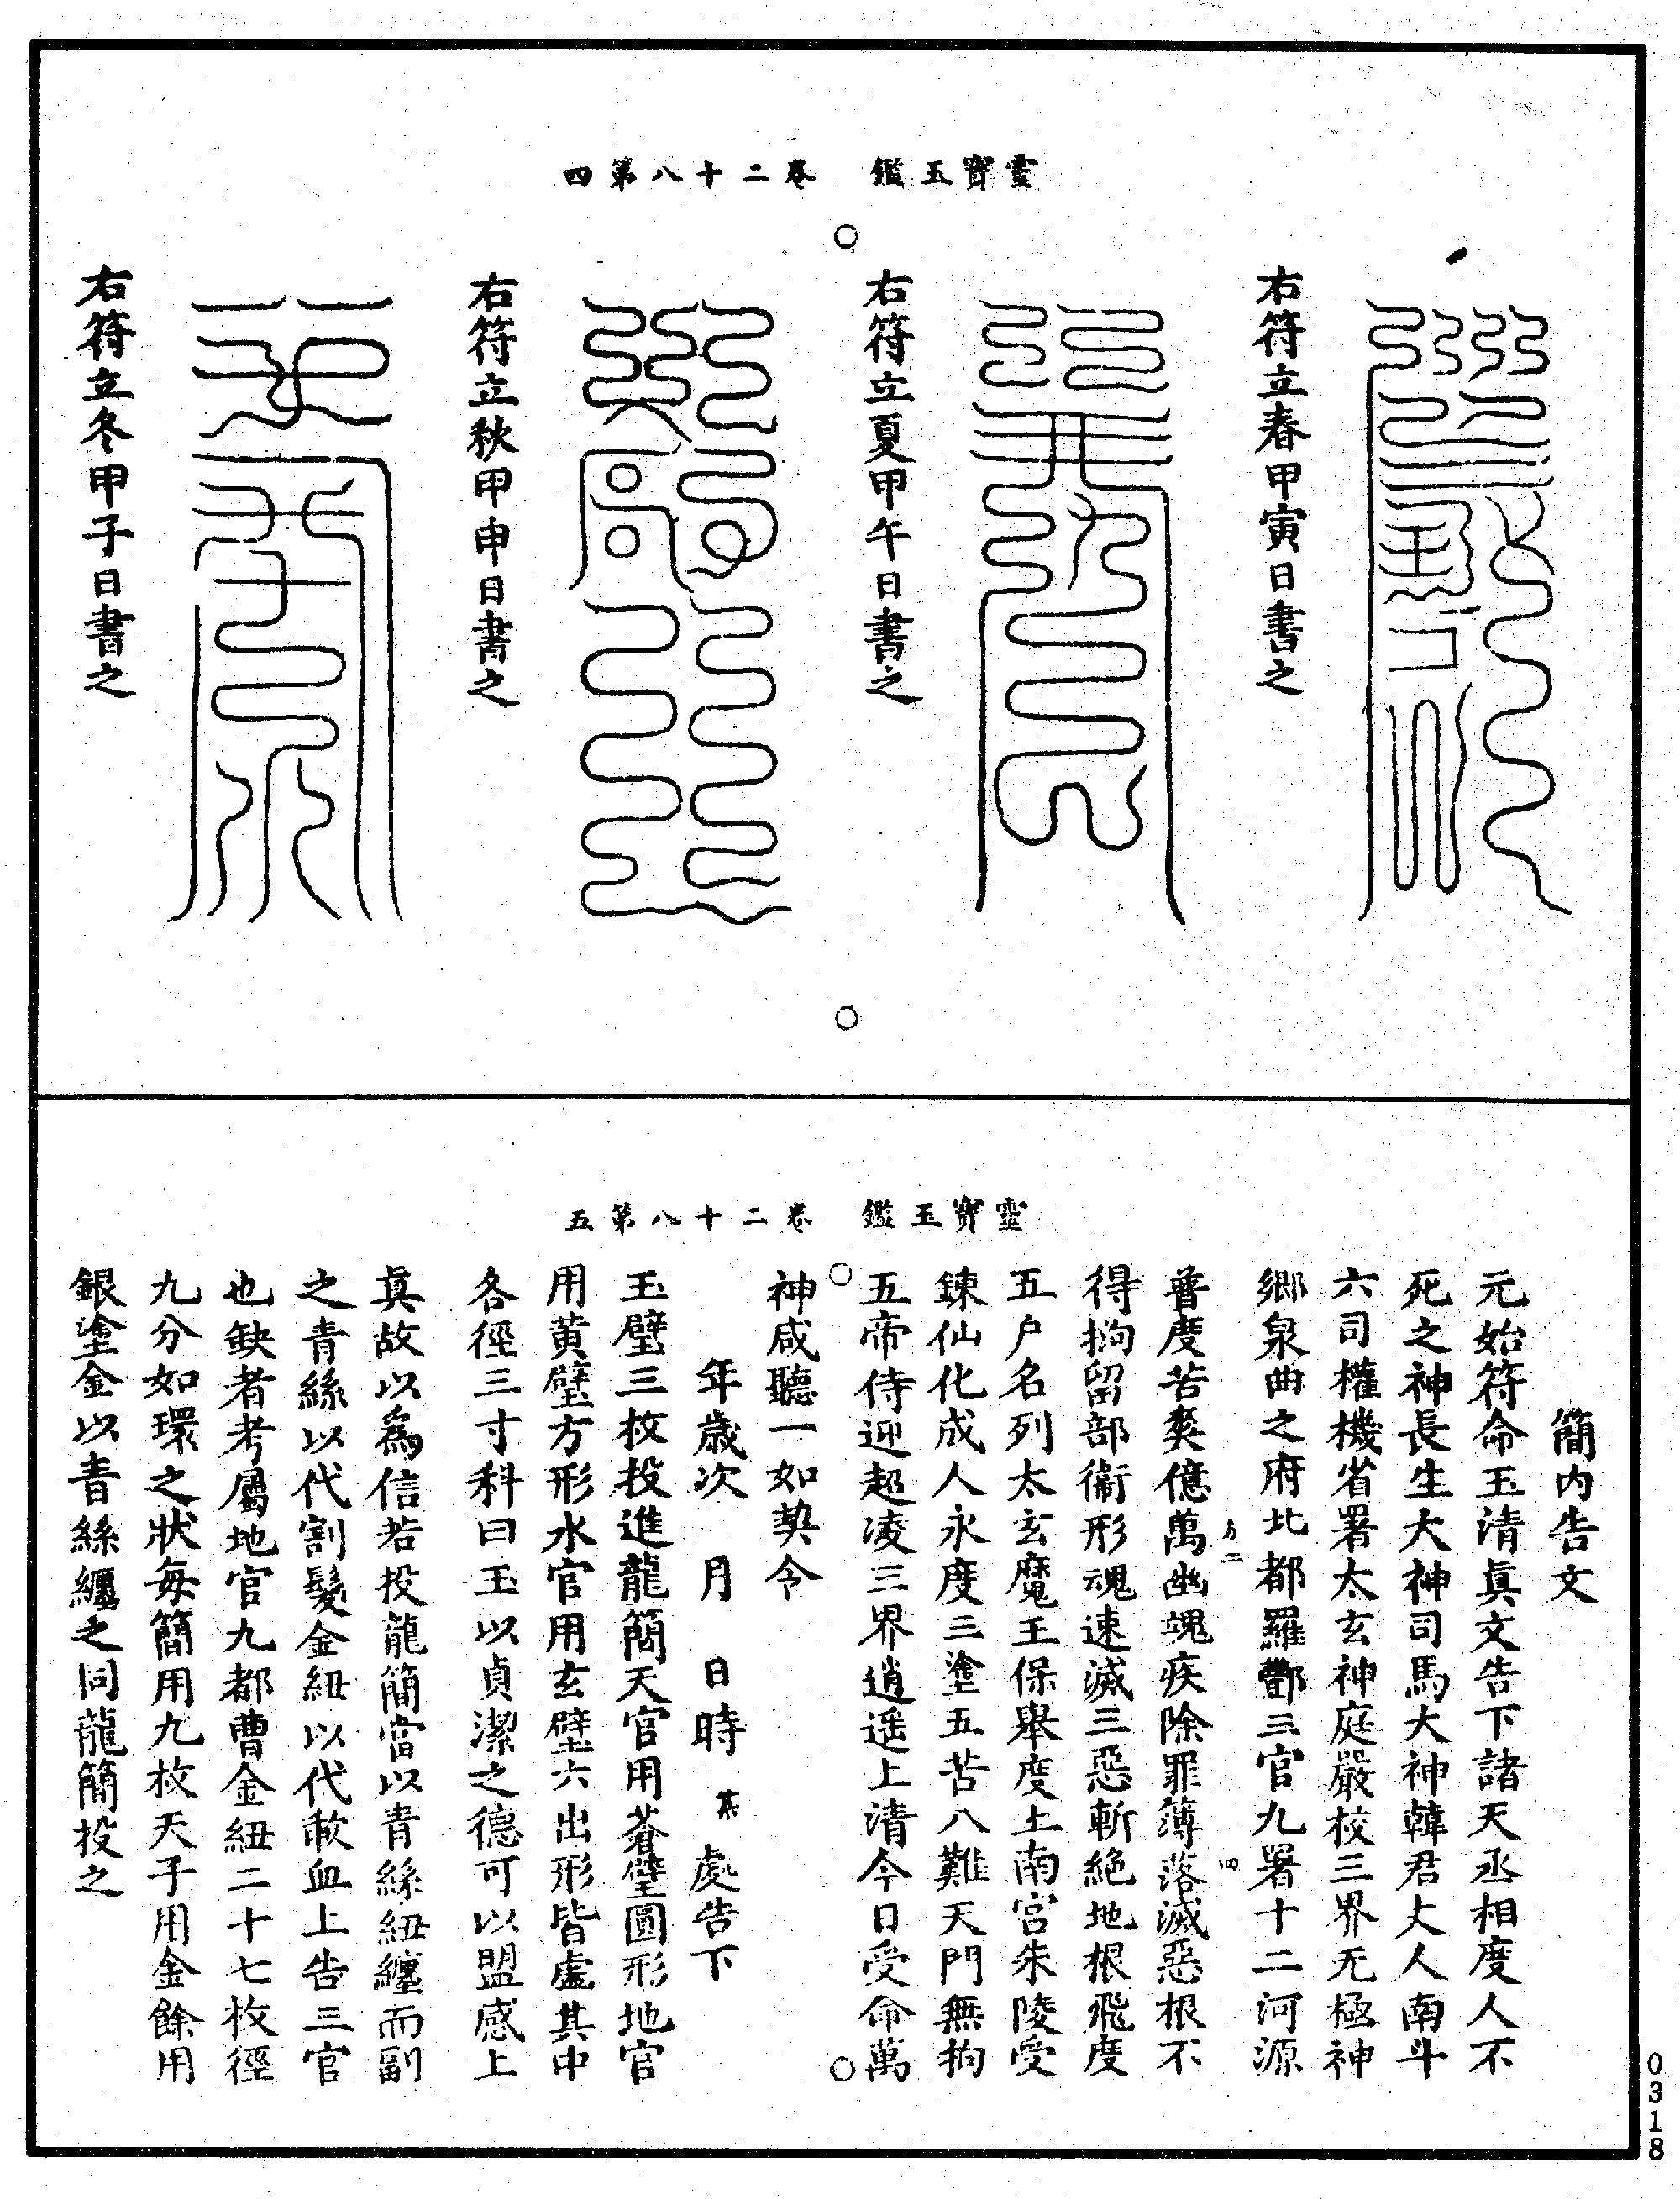 靈寶玉鑑　卷二十八第四
右符立春甲寅日書之
右符立夏甲午日書之
右符立秋甲申日書之
右符立冬甲子日書之
靈寶玉鑑　卷二十八第五
簡內告文
元始符命玉清眞文告下諸天丞相度人不
死之神長生大神司馬大神韓君丈人南斗
六司權機省署太玄神庭嚴校三界无極神
鄉泉曲之府北都羅酆三官九署十二河源
普度苦爽億萬幽魂疾除罪簿落滅惡根不
得拘留部衛形魂速滅三惡斬絕地根飛度
五户名列太玄魔王保舉度上南宮朱陵受
鍊仙化成人永度三塗五苦八難天門無拘
五帝侍迎超凌三界逍遥上清今日受命萬
神咸聽一如契令
年歲次　月　日時　某　處告下
玉璧三枚投進龍簡天官用蒼璧圓形地官
用黄璧方形水官用玄璧六出形皆虛其中
各徑三寸科曰玉以貞潔之德可以盟感上
眞故以爲信若投龍簡當以青絲紐纏而副
之青絲以代割髮金紐以代歃血上告三官
也缺者考屬地官九都曹金紐二十七枚徑
九分如環之狀每簡用九枚天子用金餘用
銀塗金以青絲纏之同龍簡投之
0318